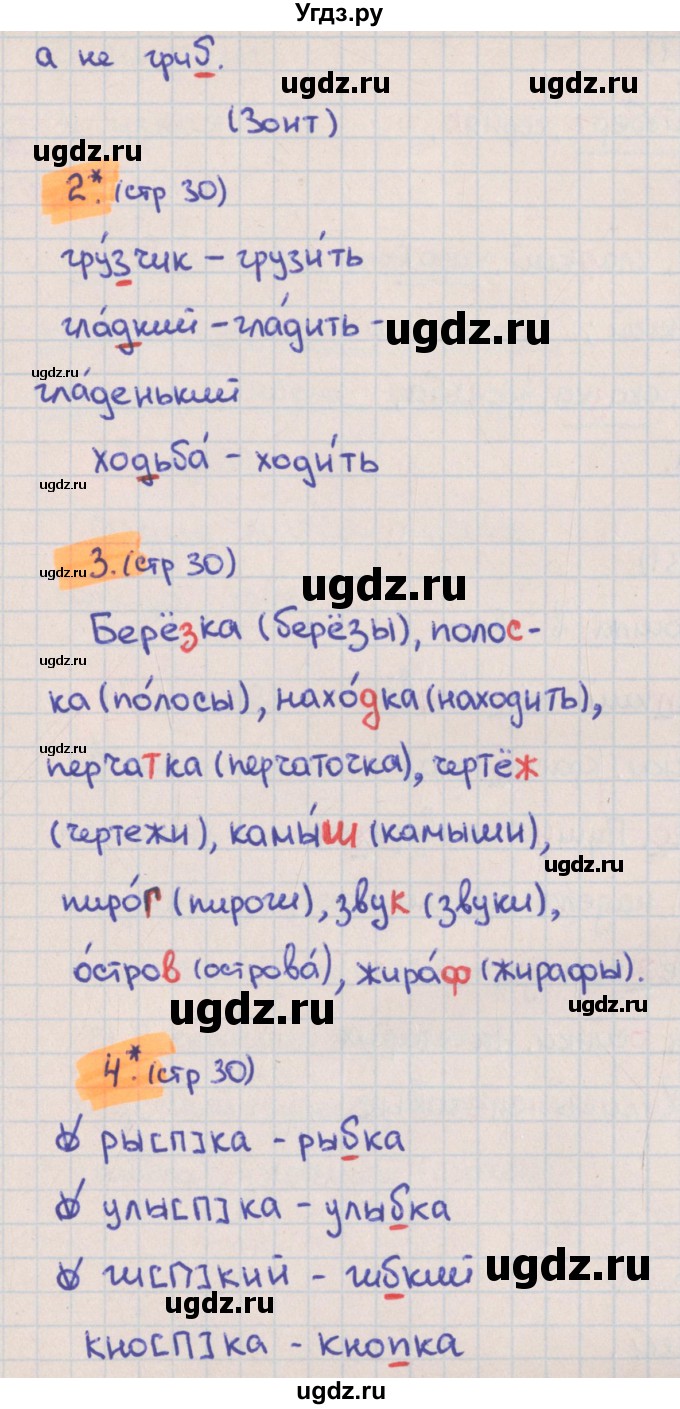 Угдз.ру
а не гриб.
ugdz.ru
(Зонт)
ugdz.ru
2*. (стр 30)
гру́зчик – грузи́ть
гла́дкий – гла́дить –
ugdz.ru
ugdz.ru
гла́денький
ходьба́ – ходи́ть
ugdz.ru
3. (стр 30)
ugdz.ru
ugdz.ru
Берёзка (берёзы), полос-
ugdz.ru
ка (по́лосы), нахо́дка (находить),
ugdz.ru
перчатка (перчаточка), чертёж
(чертежи), камы́ш (камыши),
ugdz.ru
пиро́г (пироги), звук (звуки),
о́стров (острова́), жира́ф (жирафы).
ugdz.ru
ugdz.ru
4*. (стр 30)
ры[п]ка – рыбка
улы[п]ка – улыбка
ги[п]кий – гибкий
ugdz.ru
ugdz.ru
кно[п]ка – кнопка
ugdz.ru